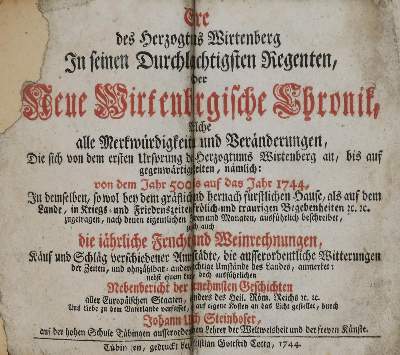 Ere
des Herzogtums Wirtenberg
In seinen Durchlachtigsten Regenten,
der
Neue Wirtenbrgische Chronik,
alle Merkwürdigkeiten und Veränderungen,
Die sich von dem ersten Ursprung Herzogtums Wirtenberg an, bis auf
gegenwärtige Zeiten, nämlich:
von dem Jahr 500 is auf das Jahr 1744,
In demselben, sowol bey dem gräflich hernach fürstlichen Hause, als auf dem
Lande, in Kriegs- und Friedenszeiten frölich und traurigen Begebenheiten ꝛc. ꝛc.
zugetragen, nach deren eigentlichen und Monaten, ausführlich beschreibet,
auch
die jährliche Frucht und Weinrechnungen,
Kauf und Schlag verschiedener Amtstädte, die ausserordentliche Witterungen
der Zeiten, und ohnzählbar andere Umstände des Landes, anmerket:
nebst einem doch ausführlichen
Nebenbericht der nemsten Geschichten
aller Europäischen Staaten, anders des Heil. Röm. Reichs ꝛc. ꝛc.
Aus Liebe zu dem Vaterlande verfasset, auf eigene Kosten an das Licht gestellet, durch
Johann Ulrich Steinhofer,
auf der hohen Schule Tübingen ausserordentlichen Lehrer der Weltweisheit und der freyen Künste.
Tübingen, gedruckt bey Christian Gottfrid Cotta, 1744.